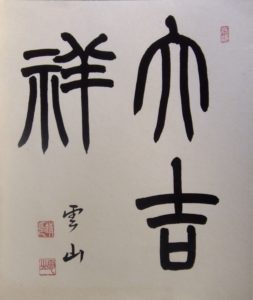 大吉
祥
雲山